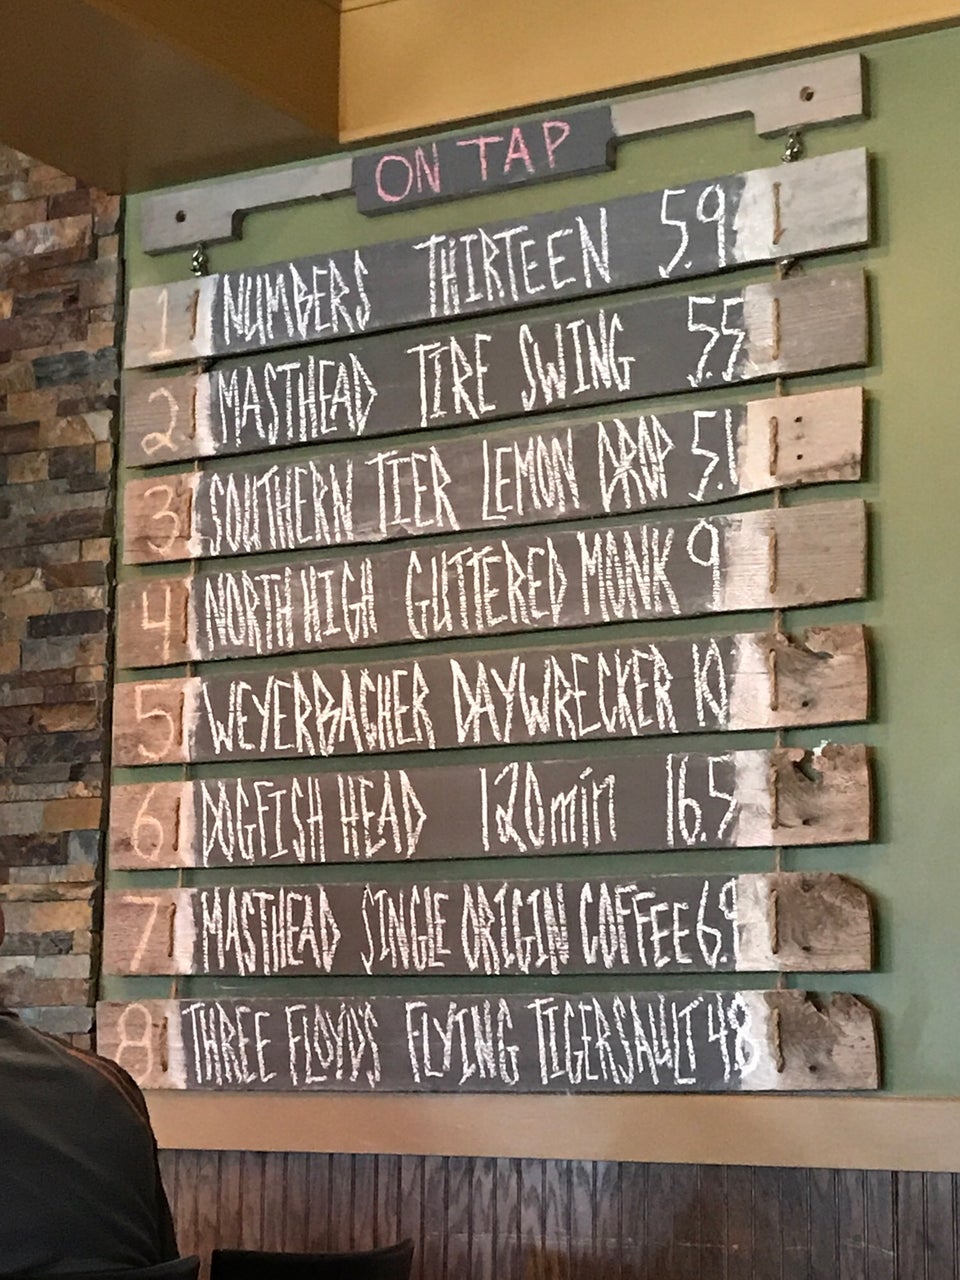 ON TAP
1 NUMBERS THIRTEEN 5.9
2 MASTHEAD TIRE SWING 5.5
3 SOUTHERN TIER LEMON DROP 5.1
4 NORTH HIGH GUTTERED MONK 9
5 WEYERBACHER DAYWRECKER 10
6 DOGFISH HEAD 120min 16.5
7 MASTHEAD SINGLE ORIGIN COFFEE 6.9
8 THREE FLOYD'S FLYING TIGERSAULT 4.8